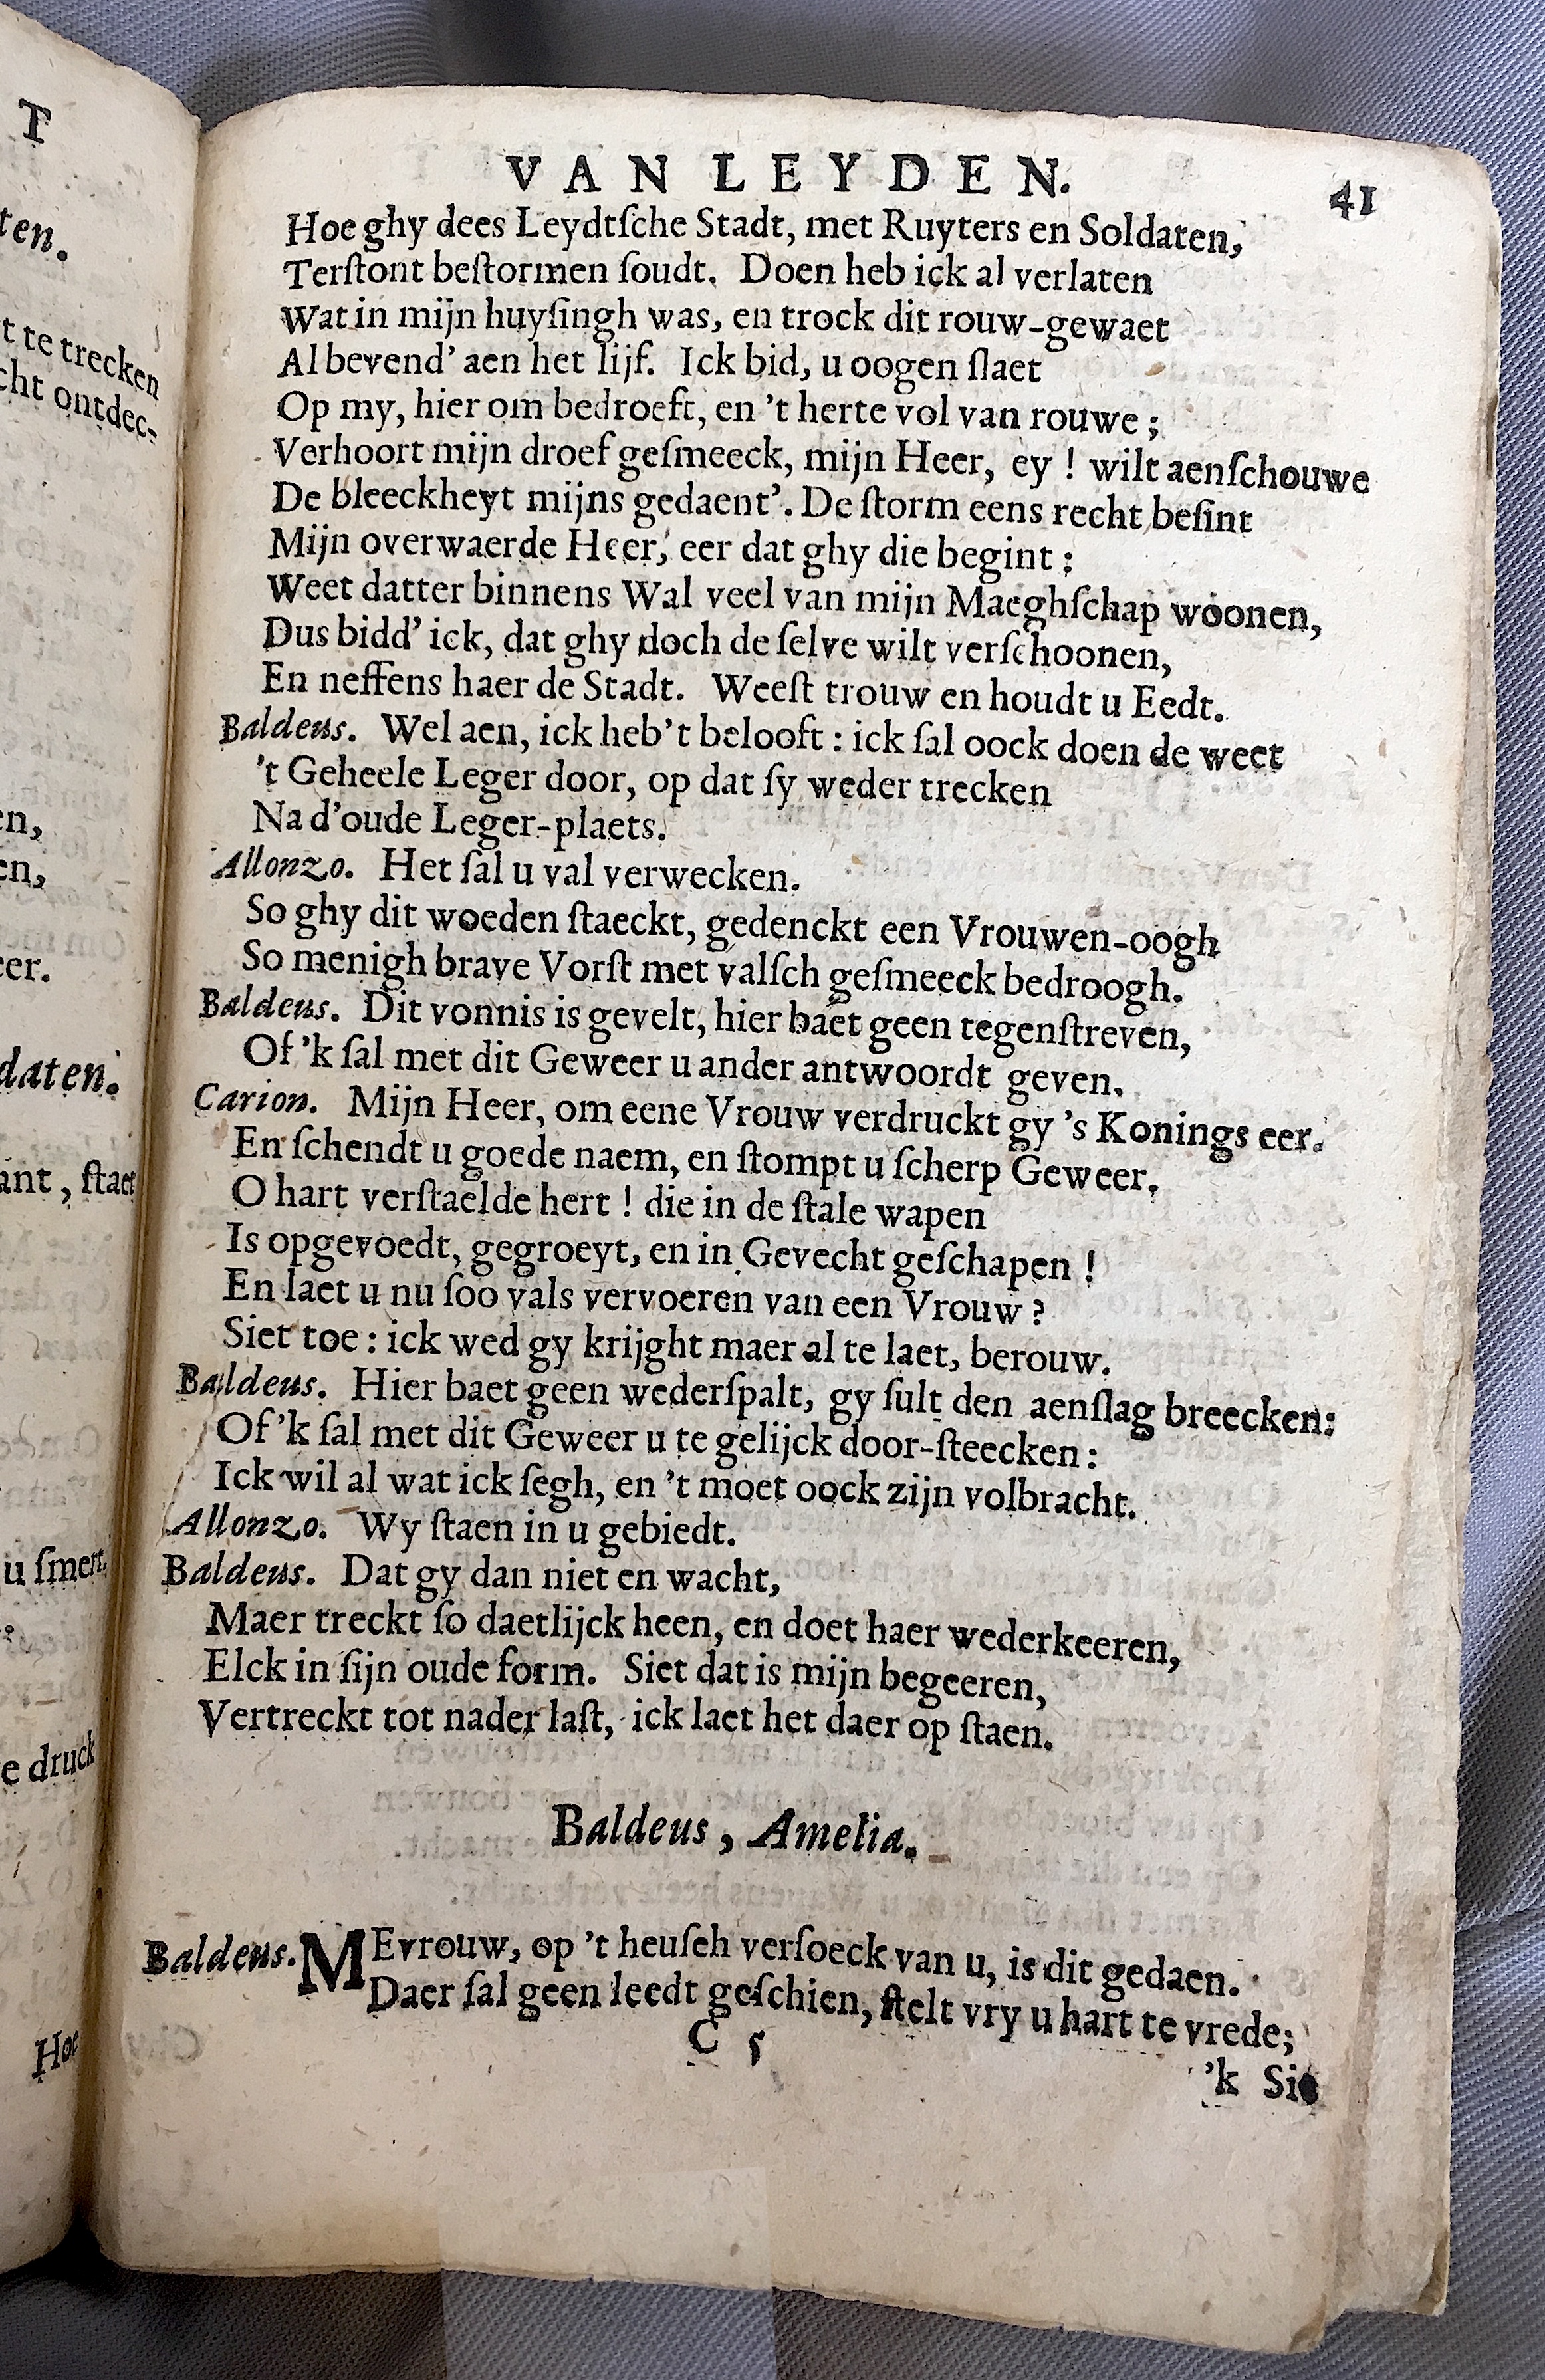 T
ten.
t te trecken
cht ontdec-
en,
en,
eer.
daten.
ant, ſtaet
u ſmert,
e druck
Hoe
VAN LEYDEN. 41
Hoe ghy dees Leydtſche Stadt, met Ruyters en Soldaten,
Terſtont beſtormen ſoudt. Doen heb ick al verlaten
Wat in mijn huyſingh was, en trock dit rouw-gewaet
Al bevend' aen het lijf. Ick bid, u oogen ſlaet
Op my, hier om bedroeft, en 't herte vol van rouwe;
Verhoort mijn droef geſmeeck, mijn Heer, ey! wilt aenſchouwe
De bleeckheyt mijns gedaent'. De ſtorm eens recht beſint
Mijn overwaerde Heer, eer dat ghy die begint;
Weet datter binnens Wal veel van mijn Maeghſchap woonen,
Dus bidd' ick, dat ghy doch de ſelve wilt verſchoonen,
En neffens haer de Stadt. Weeſt trouw en houdt u Eedt.
Baldeus. Wel aen, ick heb't belooft: ick ſal oock doen de weet
't Geheele Leger door, op dat ſy weder trecken
Na d'oude Leger-plaets.
Allonzo. Het ſal u val verwecken.
So ghy dit woeden ſtaeckt, gedenckt een Vrouwen-oogh
So menigh brave Vorſt met valſch geſmeeck bedroogh.
Baldeus. Dit vonnis is gevelt, hier baet geen tegenſtreven,
Of 'k ſal met dit Geweer u ander antwoordt geven.
Carion. Mijn Heer, om eene Vrouw verdruckt gy 's Konings eer.
En ſchendt u goede naem, en ſtompt u ſcherp Geweer.
O hart verſtaelde hert! die in de ſtale wapen
Is opgevoedt, gegroeyt, en in Gevecht geſchapen!
En laet u nu ſoo vals vervoeren van een Vrouw?
Siet toe: ick wed gy krijght maer al te laet, berouw.
Baldeus. Hier baet geen wederſpalt, gy ſult den aenſlag breecken:
Of 'k ſal met dit Geweer u te gelijck door-ſteecken:
Ick wil al wat ick ſegh, en 't moet oock zijn volbracht.
Allonzo. Wy ſtaen in u gebiedt.
Baldeus. Dat gy dan niet en wacht,
Maer treckt ſo daetlijck heen, en doet haer wederkeeren,
Elck in ſijn oude form. Siet dat is mijn begeeren,
Vertreckt tot nader laſt, ick laet het daer op ſtaen.
Baldeus, Amelia.
Baldeus. MEvrouw, op 't heuſch verſoeck van u, is dit gedaen.
Daer ſal geen leedt geſchien, ſtelt vry u hart te vrede;
C 5
'k Sie